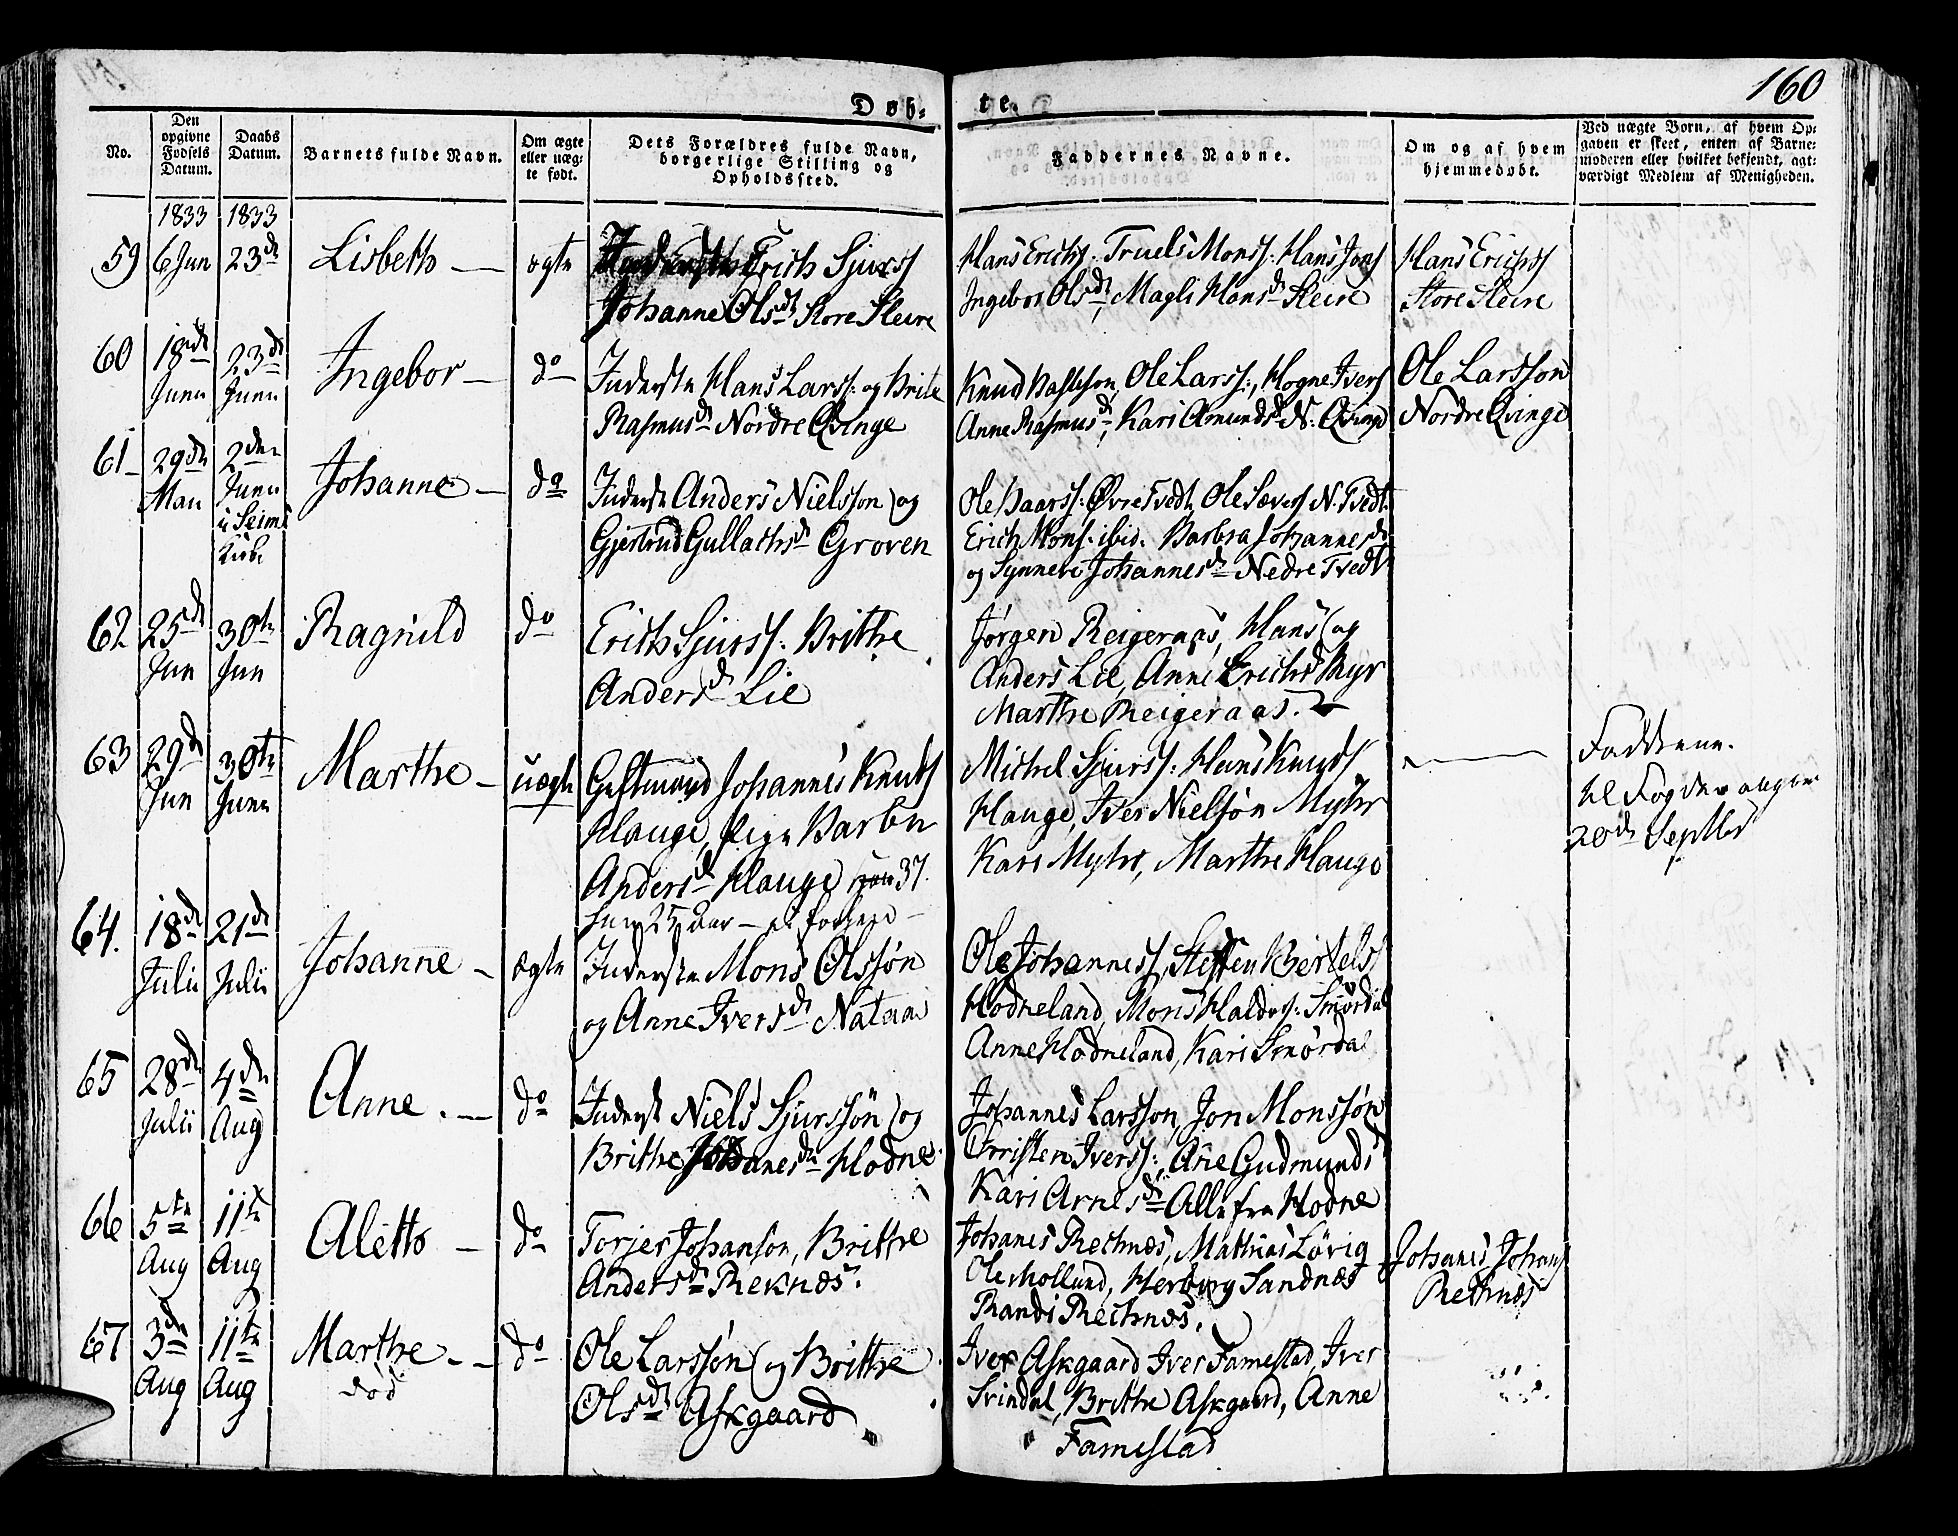 Døb-
te.
160
No.
Den opgivne Fødsels Datum.
Daabs Datum.
Barnets fulde Navn.
Om ægte eller uæg- te født.
Dets Forældres fulde Navn, borgerlige Stilling og Opholdssted.
Faddernes Navne.
Om og af hvem hjemmedøbt.
Ved uægte Børn, af hvem Op-
gaven er skeet, enten af Barne-
moderen eller hvilket bekjendt, agt-
værdigt Medlem af Menigheden.
1833 1833
59 6 Jun 23de Lisbeth ægte Erich Sjurss
Johanne Olsdr Store Steire
Hans Erichs: Truels Monss: Hans Jons
Ingebor Olsdr, Magli Hansdr Steire
Hans Erichs
Store Steire
60 18de Junii 23de Junii Ingebor do Inderste Hans Larss: og Brite
Rasmusdr Nordre Qvinge
Knud Ole Larss:, Hogne Ivers
Anne Rasmusdr, Kari Amundsdr N: Qvinge
Ole Larsson
Nordre Qvinge
61 29de Maii 2den Junii i Seims Kirke Johanne do Inderste Anders Nielsson og
Gjertrud Gullachsdr Groven
Ole Øvre Tvedt, Ole Sævers N. Tvedt
Erich Mons: ibid. Barbra Johannesdr
og Synneve Johannesdr Nedre Tvedt
62 25de Jun 30te Jun Ragnild do Erich Sjurss: Brithe
Andersdr Lie
Jørgen Reigeraas, Hans og
Anders Lie, Anne Erichsd Myr
Marthe Reigeraas.
63 29de Jun 30te Junii Marthe uægte Giftmand Johannes Knuds
Hauge, Pige Barbr
Andersdr Hauge 37.
25 Aar
Michel Sjurss: Hans Knuds
Hauge, Iver Nielsøn Myhr
Kari Myhr, Marthe Hauge
Fadderne.
til Fogden
20de Septbr
64. 18de Julii 21de Julii Johanne ægte Inderste Mons Olssøn
og Anne Iversdr Nataas
Ole Johanness, Steffen Bertels
Hodneland, Mons Haldors: Smørdal
Anne Hodneland, Kari Smørdal
65 28de Julii 4de Aug Anne do Inderst Niels Sjurssøn og
Brithe Johanesdr Hodne
Johannes Larsson, Jon Monssøn
Christen Iverss:, Ane Gudmunds
Kari Arnesdr Alle fra Hodne
66 5te Aug 11te Aug Aleth do Torjer Johanson, Brithe
Andersdr Reknæs.
Johanes Rechnæs, Mathias Løvig
Ole Molland, Herborg Sandnæs
Randi Rechnæs.
Johanes Johans
Rechnæs
67 3de Aug 11te Aug Marthe
død
do Ole Larssøn og Brithe
Olsdr Askgaard
Iver Askgaard Iver Famestad, Iver
Svindal, Brithe Askgaard, Anne
Famestad